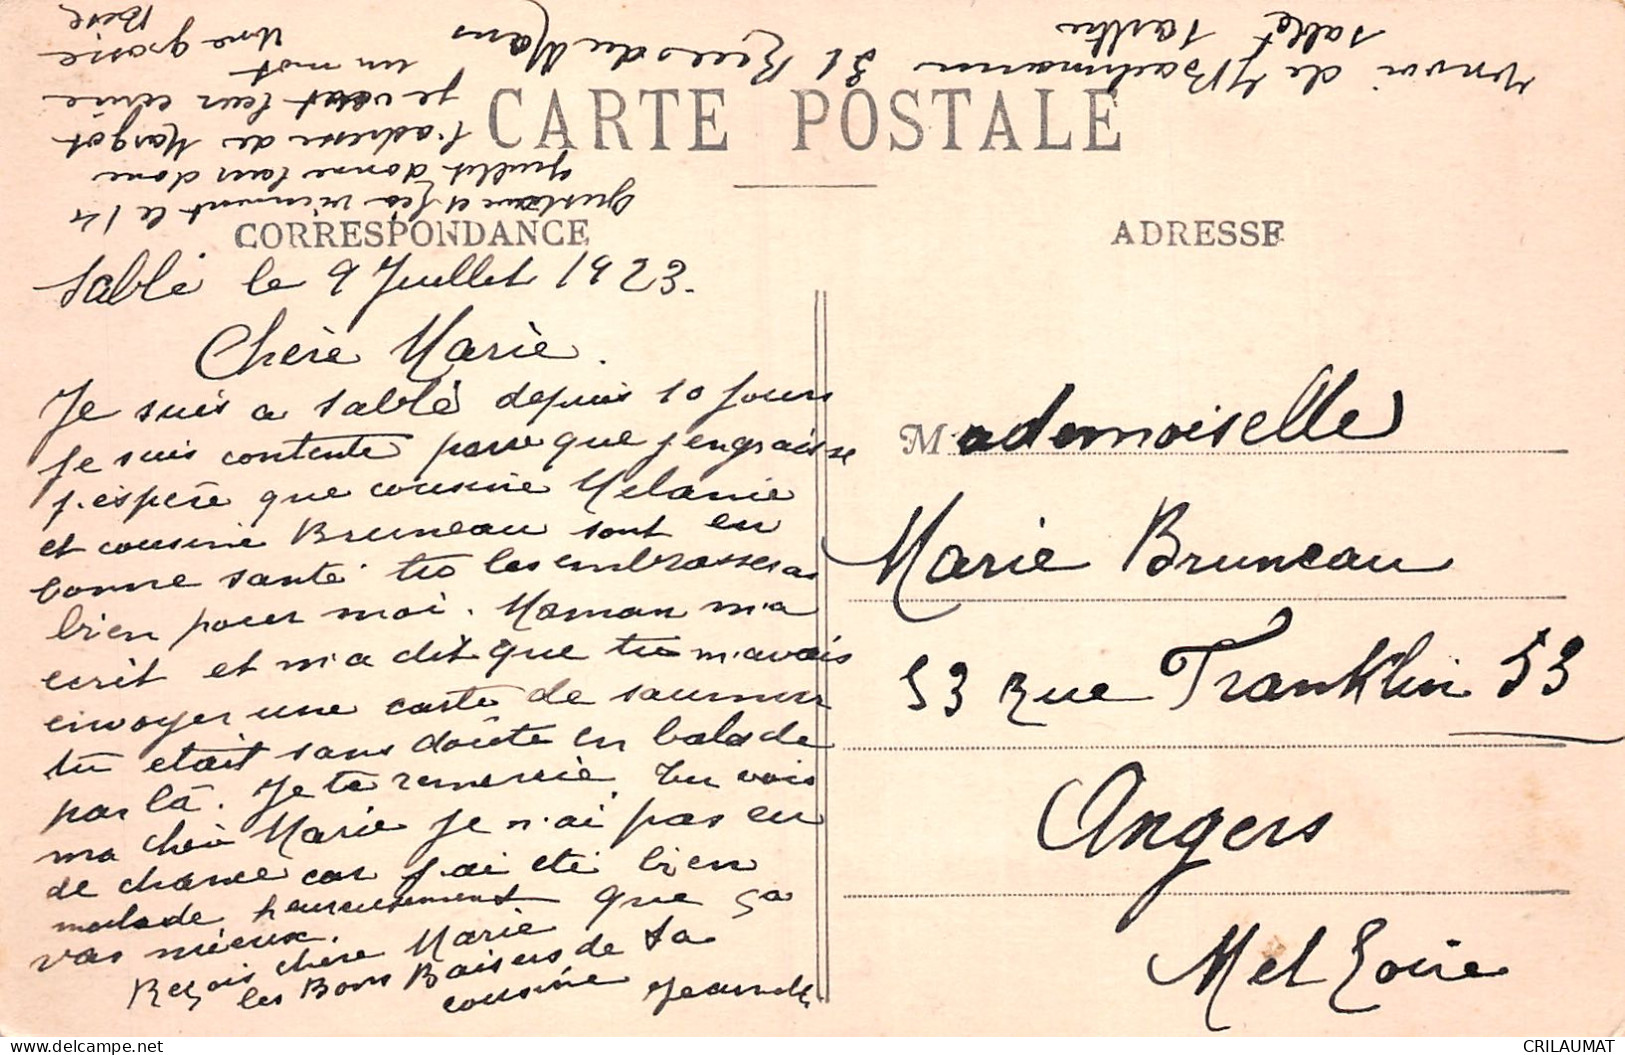 CARTE POSTALE
CORRESPONDANCE
ADRESSE
Sablé le 9 Juillet 1923.
Chère Marie.
Je suis a Sablé depuis 10 jours
je suis contente parce que j'engraisse
j'espère que cousine Melanie
et cousine Bruneau sont en
bonne santé tu les embrasseras
bien pour moi. Maman m'a
ecrit et m'a dit que tu m'avais
envoyer une carte de Saumur
tu etait sans doûte en balade
par là. Je te remercie. Tu vois
ma chère Marie je n'ai pas eu
de chance car j'ai été bien
malade heureusement que ça
vas mieux.
Reçois chère Marie
les Bons Baisers de ta
cousine Jeanne
Gustave et Léo viennent le 14
juillet donne leur donc
l'adresse de Margot
je veut leur ecrire
un mot
Une grosse
Bise
Monvoi de J Bachmann 31 Rue du Mans
Sablé Sarthe
Mademoiselle
Marie Bruneau
53 Rue Franklin 53
Angers
M et Loire
CRILAUMAT